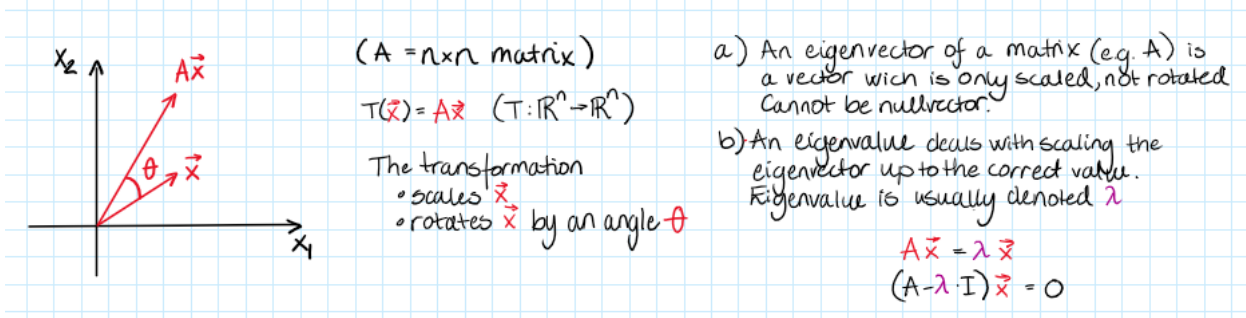 X₂
Ax⃗
θ
x⃗
X₁
(A = n×n matrix)
T(x⃗) = Ax⃗ (T: ℝⁿ→ℝⁿ)
The transformation
• scales x⃗
• rotates x⃗ by an angle θ
a) An eigenvector of a matrix (e.g. A) is
a vector wich is only scaled, not rotated
Cannot be nullvector.
b) An eigenvalue deals with scaling the
eigenvector up to the correct value.
Eigenvalue is usually denoted λ
Ax⃗ = λx⃗
(A-λ·I)x⃗ = 0